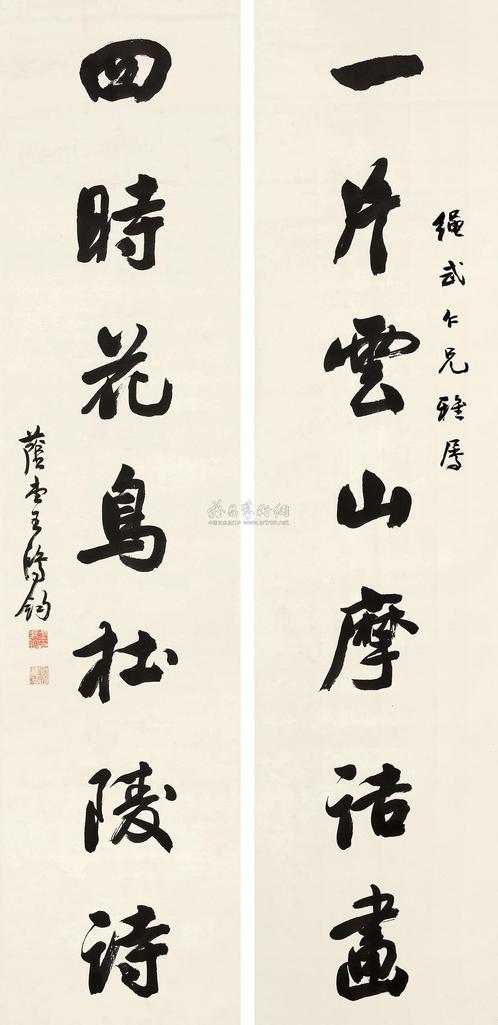 繩武仁兄雅屬
一片雲山摩詰畫
四時花鳥杜陵詩
蔭堂王鴻鈞
www.artron.net